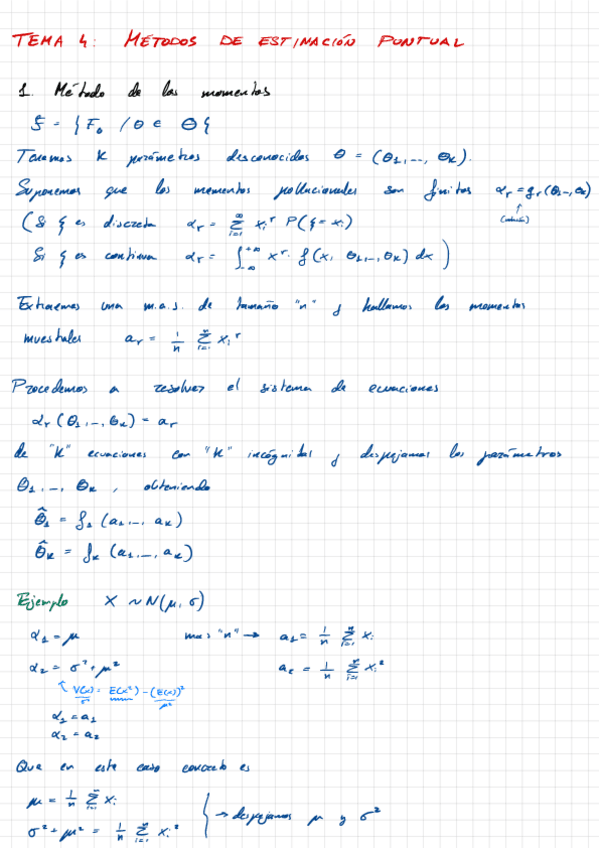 TEMA 4: MÉTODOS DE ESTIMACIÓN PUNTUAL
1. Método de los momentos
F = { F_θ / θ ∈ Θ {
Tenemos K parámetros desconocidos θ = (θ₁,..., θ_K).
Suponemos que los momentos poblacionales son finitos α_r = g_r(θ₁..., θ_K)
(Si ξ es discreta α_r = Σ_{i=1}^{∞} x_i^r P(ξ = x_i)
Si ξ es continua α_r = ∫_{-∞}^{+∞} x^r · f(x, θ₁,..., θ_K) dx )
Extraemos una m.a.s. de tamaño "n" y hallamos los momentos
muestrales a_r = 1/n Σ_{i=1}^{n} x_i^r
Procedemos a resolver el sistema de ecuaciones
α_r (θ₁,..., θ_K) = a_r
de "K" ecuaciones con "K" incógnitas y despejamos los parámetros
θ₁,..., θ_K, obteniendo
θ̂₁ = f₁ (a₁..., a_K)
θ̂_K = f_K (a₁,..., a_K)
Ejemplo X ~ N(μ, σ)
α₁ = μ mas "n" → a₁ = 1/n Σ_{i=1}^{n} x_i
α₂ = σ² + μ² a₂ = 1/n Σ_{i=1}^{n} x_i²
V(x) = E(x²) - (E(x))²
σ² μ²
α₁ = a₁
α₂ = a₂
Que en este caso concreto es
μ = 1/n Σ_{i=1}^{n} x_i
σ² + μ² = 1/n Σ_{i=1}^{n} x_i² } → despejamos μ y σ²